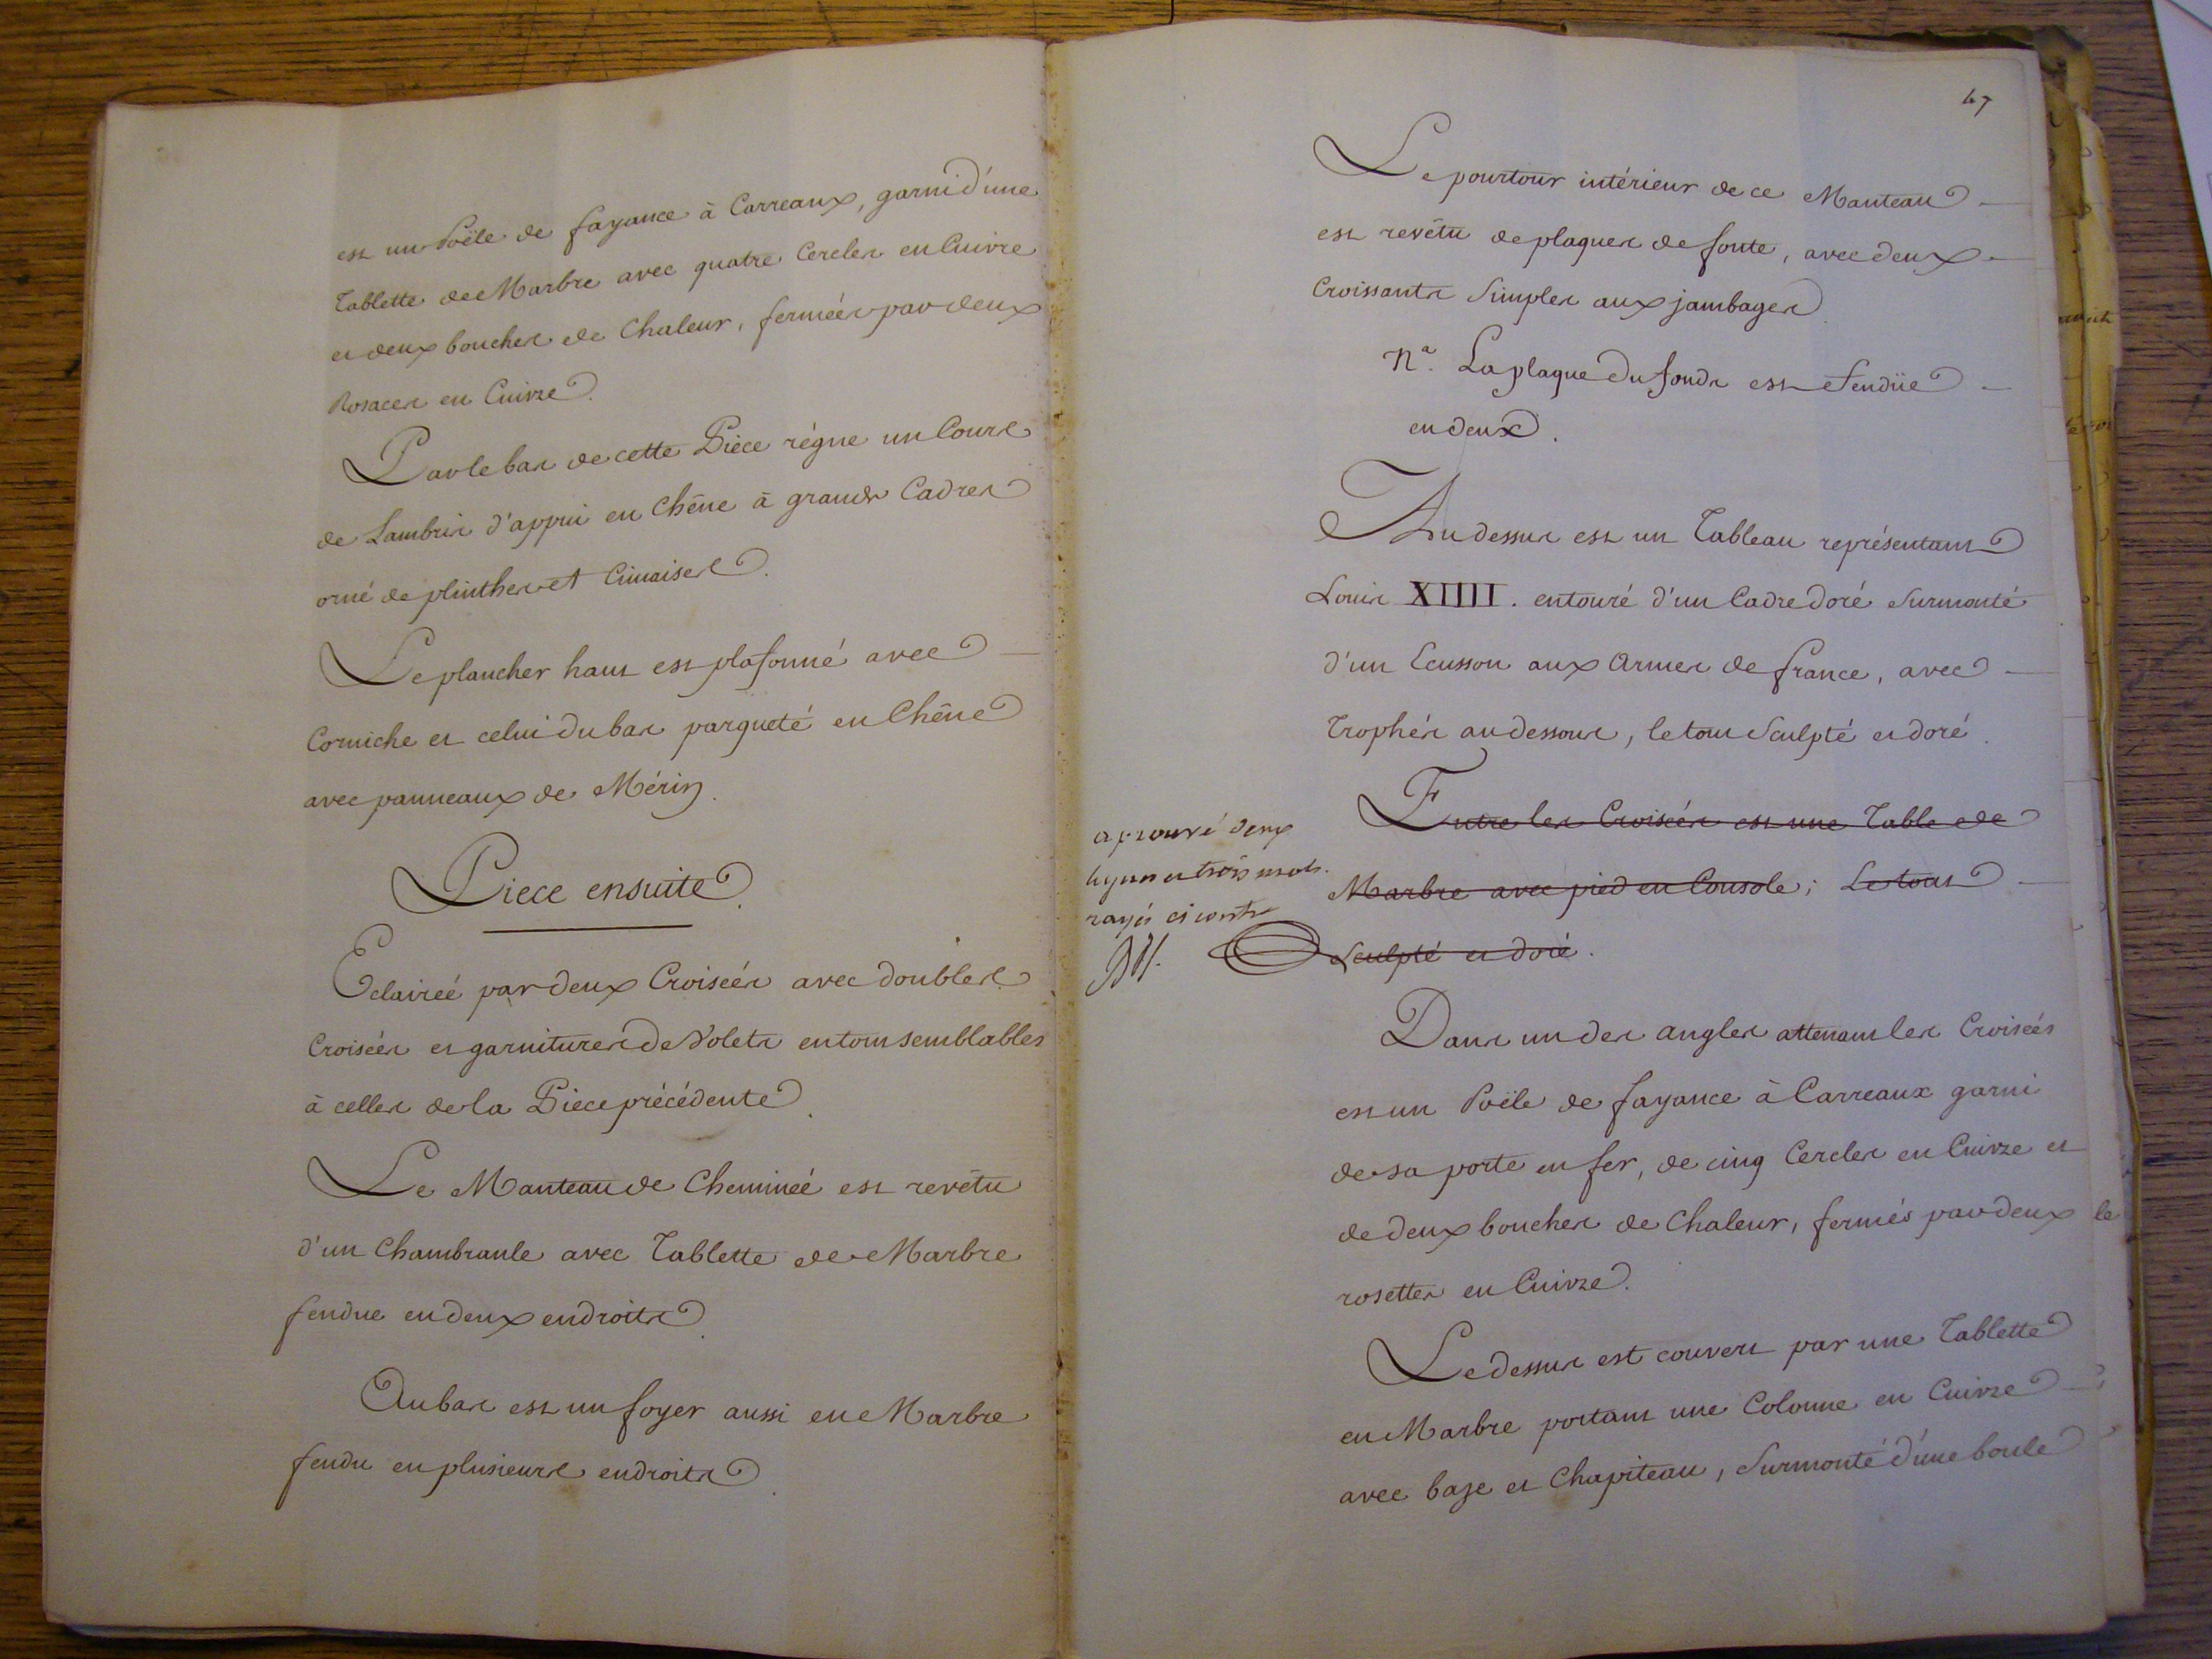 est un Poële de fayance à Carreaux, garni d'une
Tablette de Marbre avec quatre Cercles en Cuivre
et deux bouches de Chaleur, fermées par deux
Rosaces en Cuivre.
Par le bas de cette Piéce règne un Cours
de Lambris d'appui en Chêne à grands Cadres
orné de plinthes et Cimaises.
Le plancher haut est plafonné avec
Corniche et celui du bas parqueté en Chêne
avec panneaux de Mérin.
Piece ensuite.
Eclaireé par deux Croiseés avec doubles
Croiseés et garnitures de Volets en tout semblables
à celles de la Piéce précédente.
Le Manteau de Chemineé est revêtu
d'un Chambranle avec Tablette de Marbre
fendue en deux endroits.
Au bas est un foyer aussi en Marbre
fendu en plusieurs endroits.
47
Le pourtour intérieur de ce Manteau
est revêtu de plaques de fonte, avec deux
Croissants Simples aux jambages
Nª. La plaque du fonds est fendüe
en deux.
Au dessus est un Tableau représentant
Louis XIIII. entouré d'un Cadre doré Surmonté
d'un Ecusson aux Armes de france, avec
Trophés au dessous, le tout Sculpté et doré.
Entre les Croiseés est une Table de
Marbre avec pied en Console; Le tout
Sculpté et doré.
aprouvé deux
lignes et trois mots
rayés ci contre
Dans un des angles attenant les Croiseés
est un Poële de fayance à Carreaux garni
de sa porte en fer, de cinq Cercles en Cuivre et
de deux bouches de Chaleur, fermés par deux
rosettes en Cuivre.
Le dessus est couvert par une Tablette
en Marbre portant une Colonne en Cuivre
avec baze et Chapiteau, Surmonté d'une boule